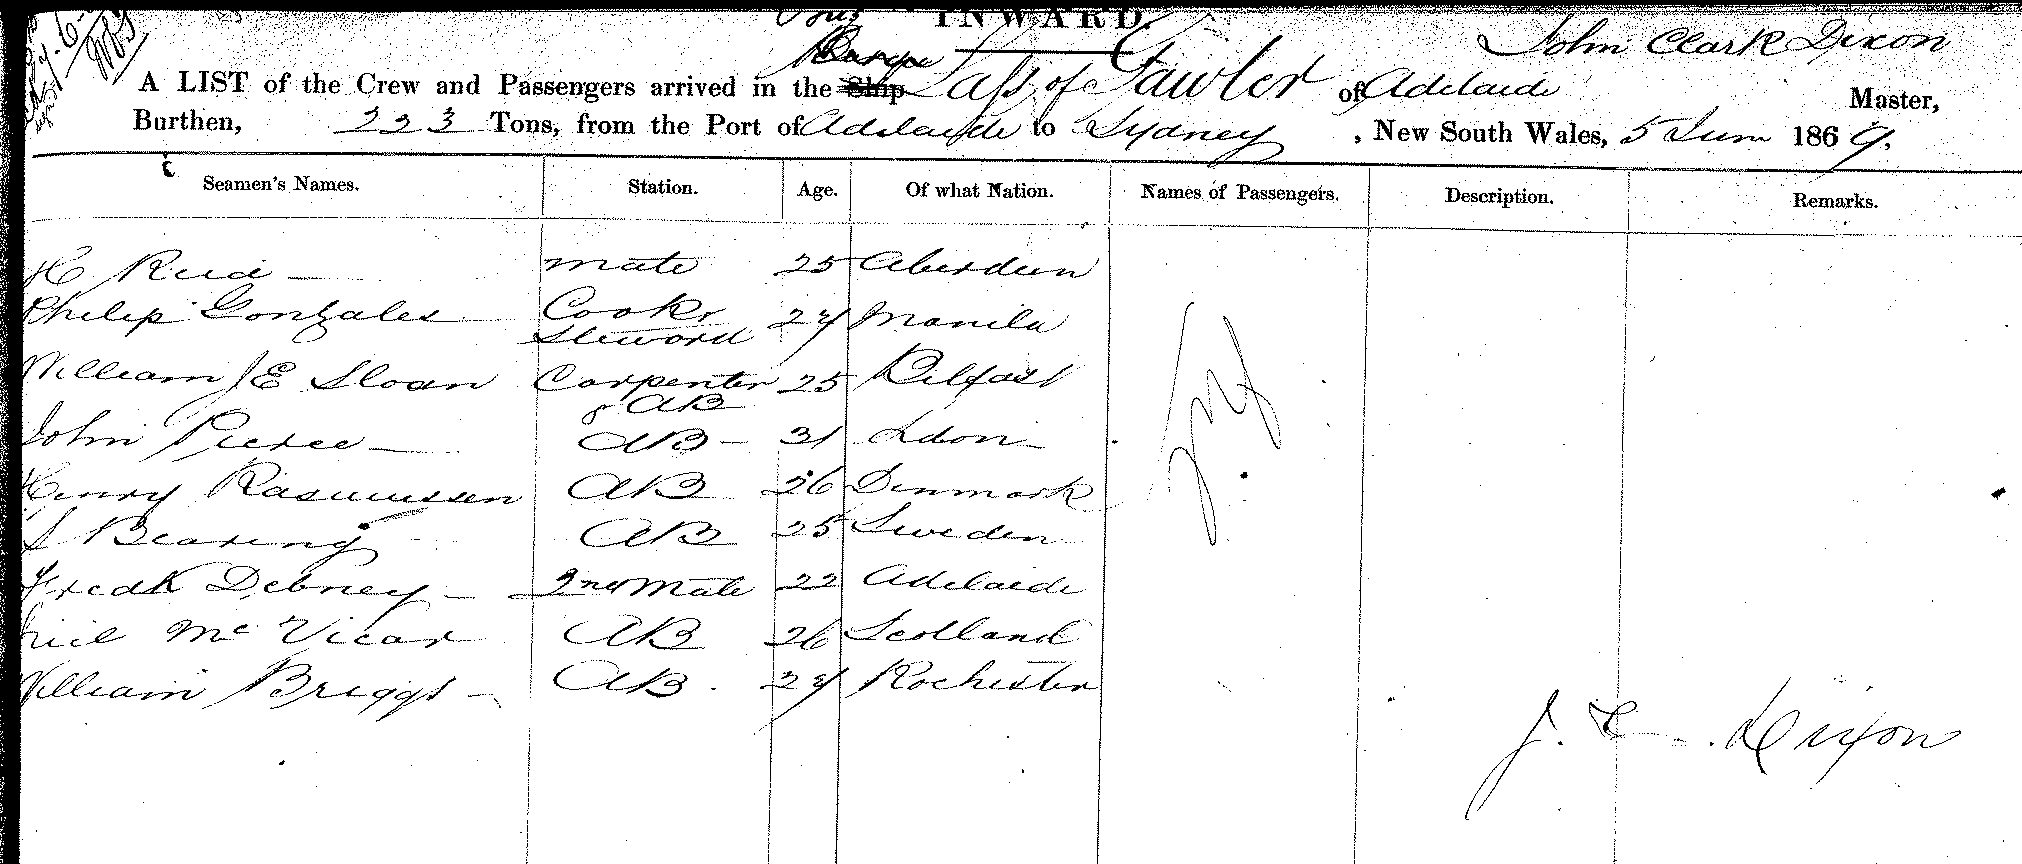 INWARD
John Clark Dixon
Barque
A LIST of the Crew and Passengers arrived in the Ship Lass of Gawler of Adelaide Master,
Burthen, 223 Tons, from the Port of Adelaide to Sydney, New South Wales, 5 June 1869.
Seamen's Names. Station. Age. Of what Nation. Names of Passengers. Description. Remarks.
H Reid mate 25 Aberdeen
Philip Gonzales Cook & 27 Manila
Steward
William J E Sloan Carpenter 25 Belfast
& AB
John Pierce AB 31 Ldon
Henry Rasmussen AB 26 Denmark
S Bearing AB 25 Sweden
Fredk Debney 2nd Mate 22 Adelaide
Neil McVicar AB 26 Scotland
William Briggs AB 27 Rochester
J. C. Dixon